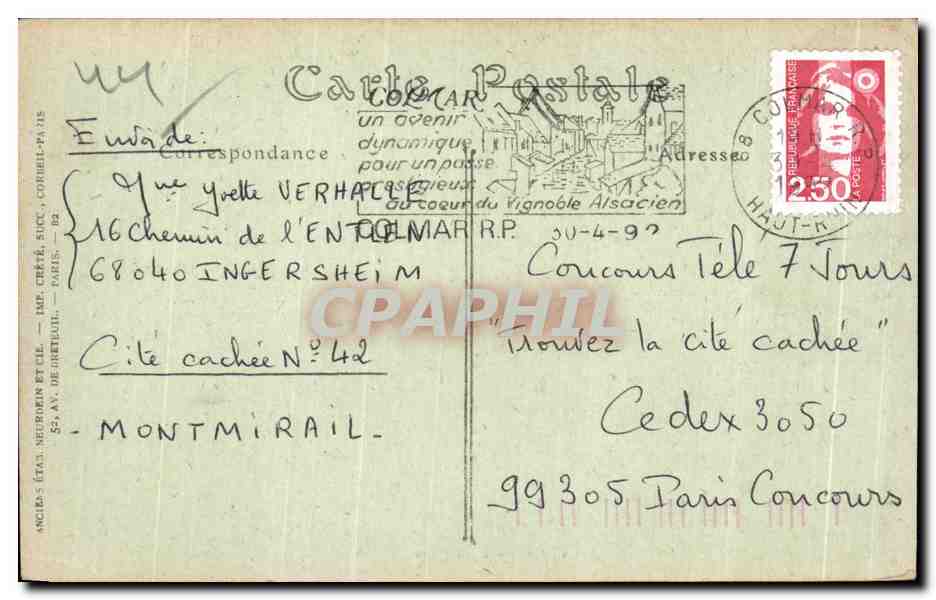 44
Carte Postale
COLMAR
un avenir
dynamique
pour un passé
prestigieux
au coeur du Vignoble Alsacien
COLMAR R.P.
-4-92
COLMAR R.P.
HAUT-RHIN
REPUBLIQUE FRANÇAISE
LA POSTE
2,50
Correspondance
Adresse
Envoi de:
Mme Yvette VERHAEGE
16 Chemin de l'ENTLEN
68040 INGERSHEIM
Cité cachée N° 42
- MONTMIRAIL -
Concours Télé 7 Jours
"Trouvez la cité cachée"
Cedex 3050
99305 Paris Concours
CPAPHIL
ANCIENS ÉTAB. NEURDEIN ET CIE. — IMP. CRÉTÉ, SUCC., CORBEIL-PARIS
52, AV. DE BRETEUIL. — PARIS. — B2